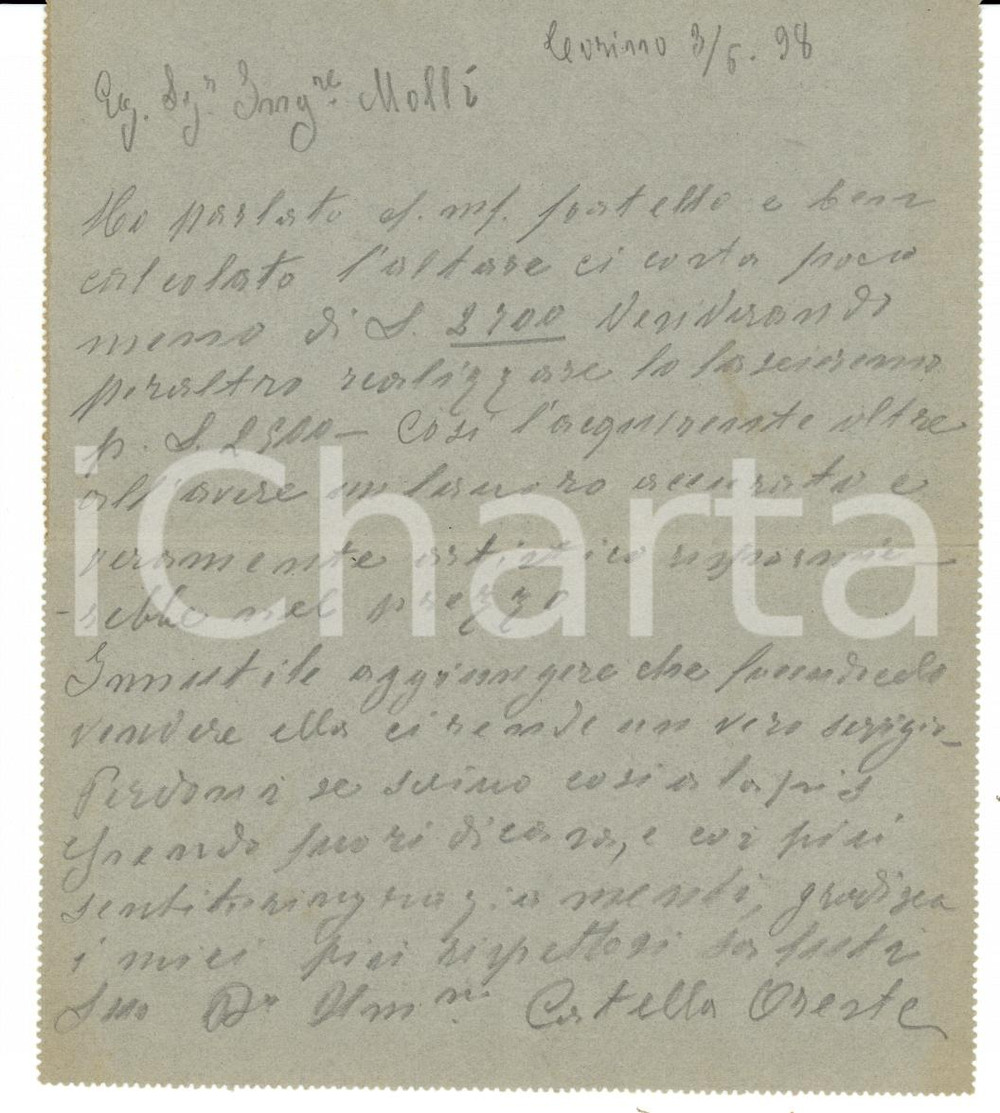 3/6. 98
Eg. Sigr Ingre Molli
Ho parlato c. m. fratello e ben
calcolato l'altare ci costa poco
meno di L. 2700 Desiderando
peraltro realizzare lo lascieremo
p. L. 2500 – Così l'acquirente oltre
all'avere un lavoro accurato e
veramente artistico risparmie
-rebbe nel prezzo
Innutile aggiungere che facendocelo
vendere ella ci rende un vero servizio –
Perdoni se scrivo così a lapis
essendo fuori di casa, e coi più
sentiti ringraziamenti, gradisca
i miei più rispettosi saluti
Suo Catella Oreste
iCharta